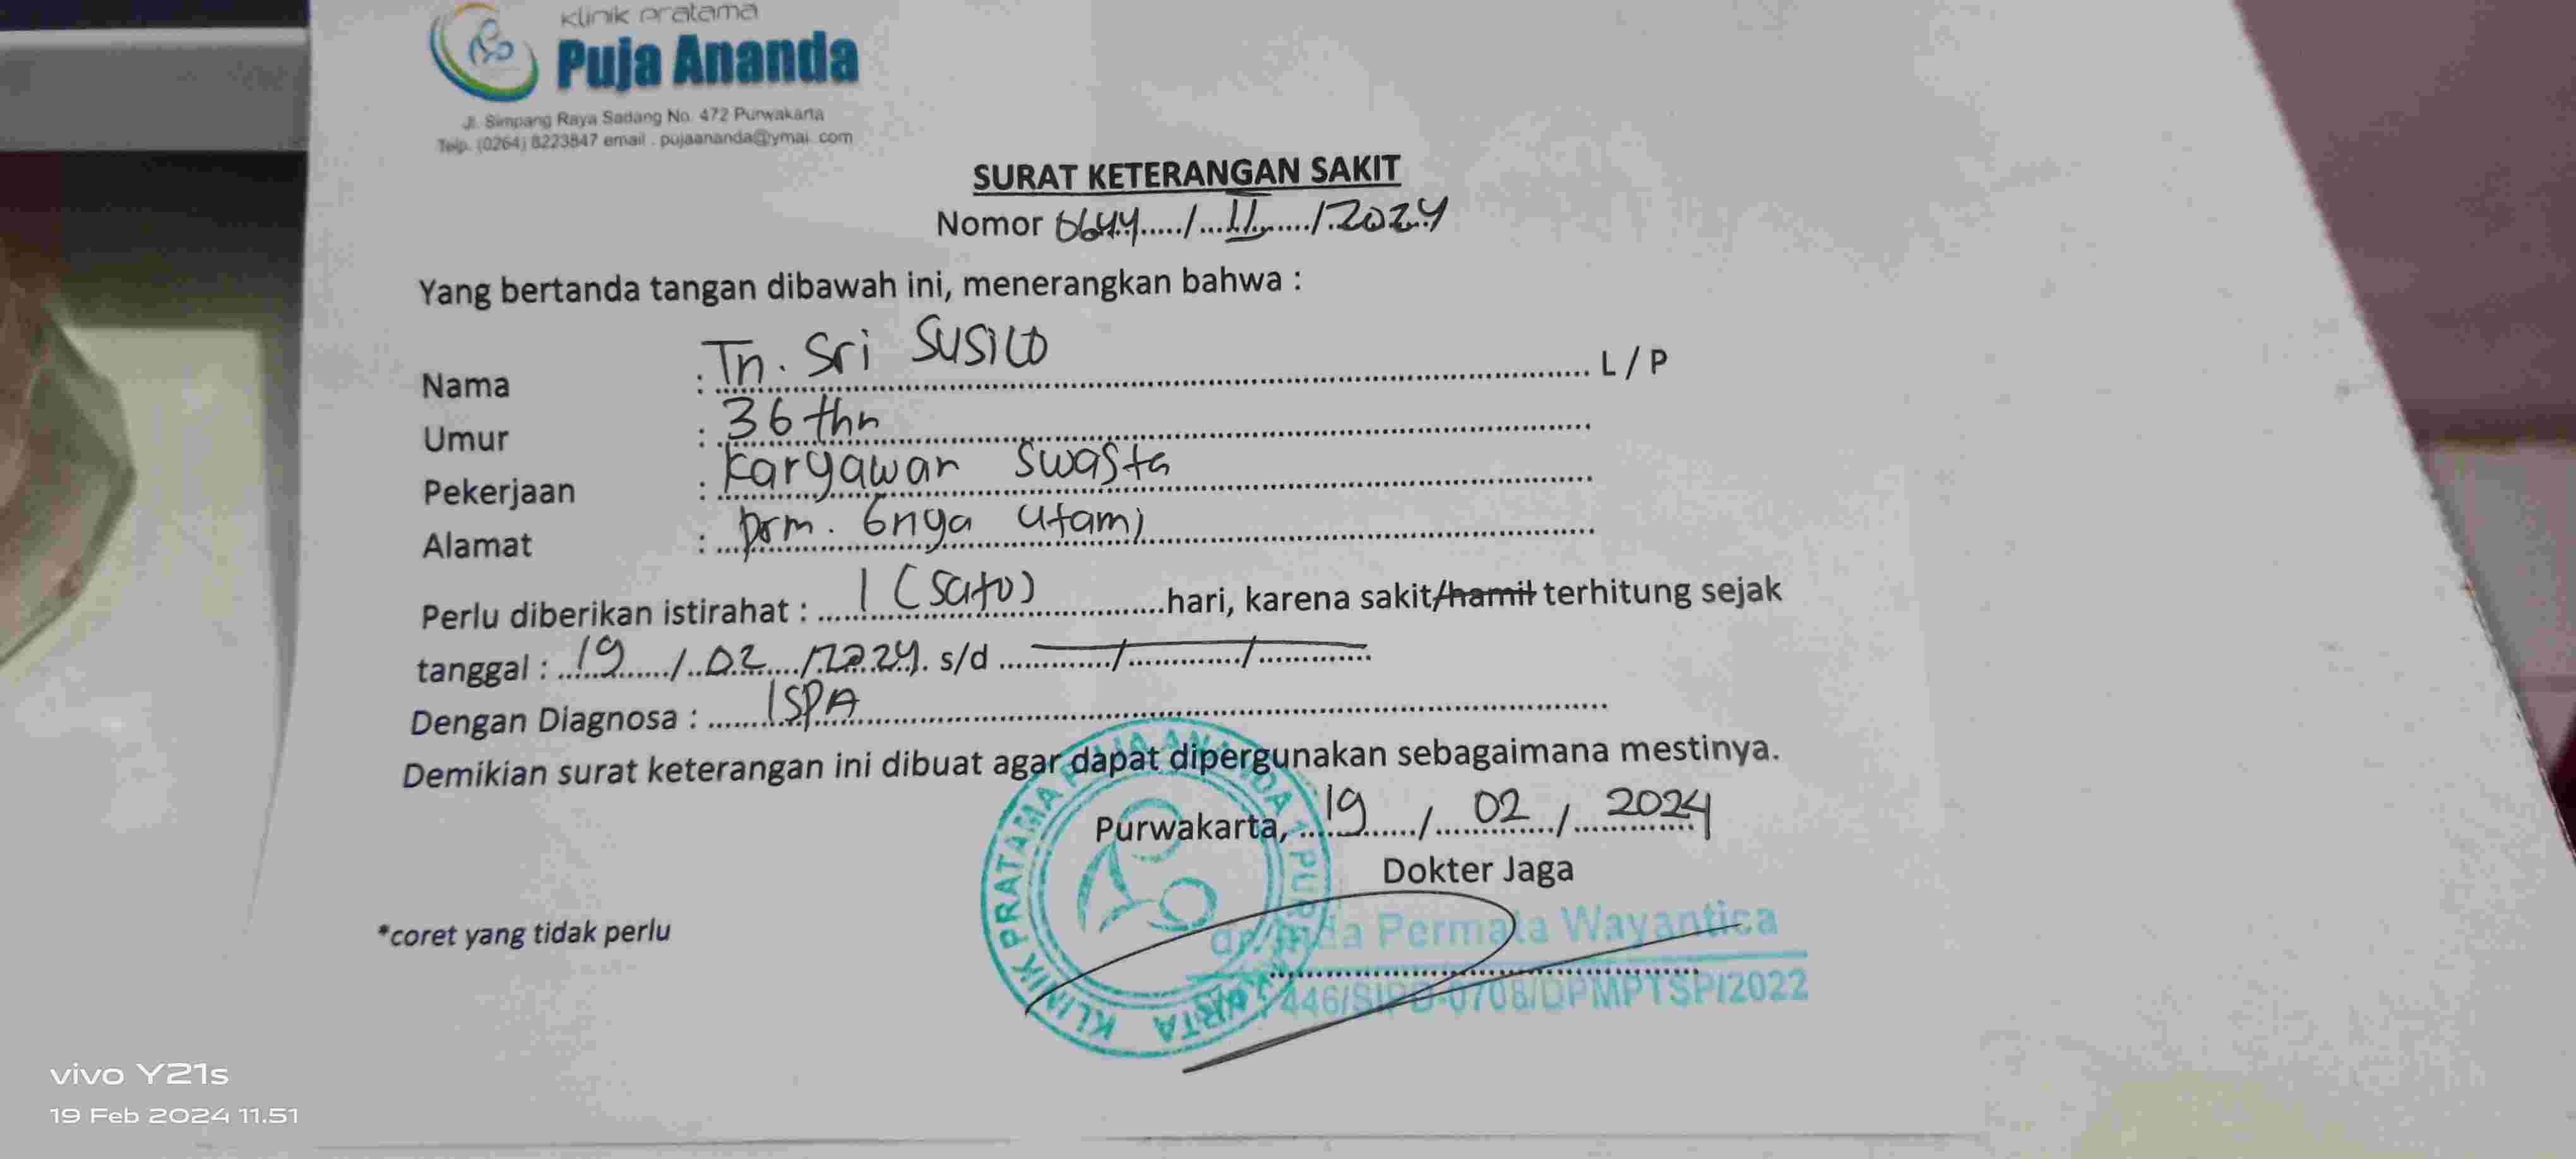 klinik pratama
Puja Ananda
Jl. Simpang Raya Sadang No. 472 Purwakarta
Telp. (0264) 8223847 email . pujaananda@ymai .com
SURAT KETERANGAN SAKIT
Nomor 0644...../...II....../.2024
Yang bertanda tangan dibawah ini, menerangkan bahwa :
Nama : Tn. Sri Susilo L / P
Umur : 36 thn
Pekerjaan : Karyawan Swasta
Alamat : prm. Utami
Perlu diberikan istirahat : 1 (satu) hari, karena sakit/hamil terhitung sejak
tanggal : 19 / 02 / 2024 s/d ............./............./.............
Dengan Diagnosa : ISPA
Demikian surat keterangan ini dibuat agar dapat dipergunakan sebagaimana mestinya.
Purwakarta, 19 / 02 / 2024
Dokter Jaga
*coret yang tidak perlu
KLINIK PRATAMA PUJA ANANDA PURWAKARTA
Permata Wayantica
446/SIPD-0708/DPMPTSP/2022
vivo Y21s
19 Feb 2024 11.51